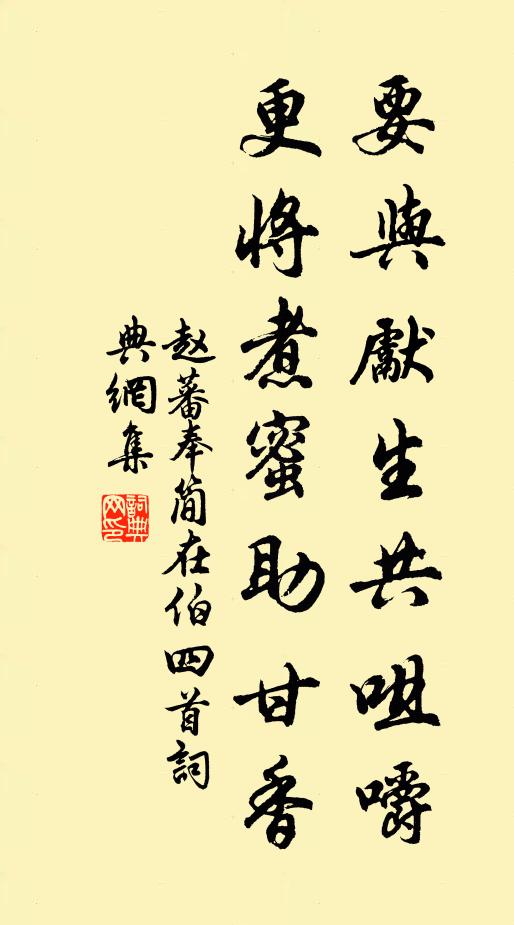 要與獻生共咀嚼
更將煮蜜助甘香
赵蕃奉简在伯四首詞
典網集
詞典
网印